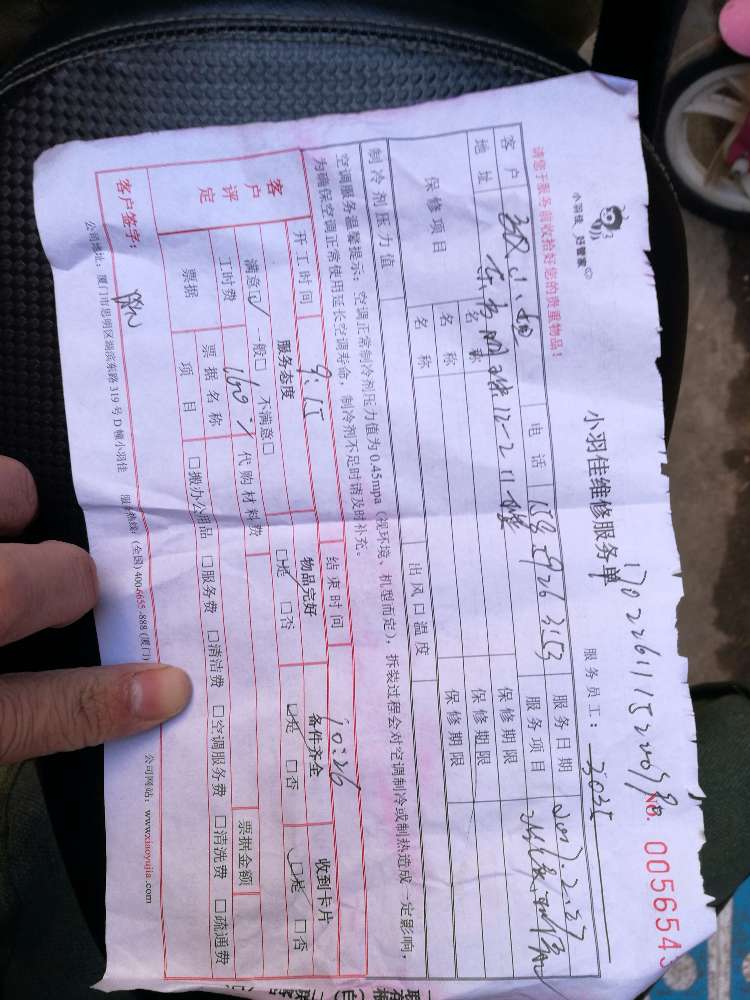 小羽佳 好管家
小羽佳维修服务单
NO. 005654
请您于服务前收拾好您的贵重物品！
服务员工： 3035
客户 电话 服务日期 2017.2.27
地址 服务项目
保修项目 名称 保修期限
名称 保修期限
名称 保修期限
制冷剂压力值 出风口温度
空调服务温馨提示：空调正常制冷剂压力值为0.45mpa（视环境、机型而定），拆装过程会对空调制冷或制热造成一定影响，
为确保空调正常使用延长空调寿命，制冷剂不足时请及时补充。
开工时间 9:15 结束时间 10:26
客户评定 服务态度 物品完好 备件齐全 收到卡片
满意☑ 一般□ 不满意□ ☑是 □否 ☑是 □否 ☑是 □否
工时费 160 代购材料费
票据 票据名称 票据金额
项目 □搬办公用品 □服务费 □清洁费 □空调服务费 □清洗费 □疏通费
客户签字：
公司地址：厦门市思明区湖滨东路319号D幢小羽佳 服务热线：(全国) 400-6655-888 (厦门) 公司网站：www.xiaoyujia.com